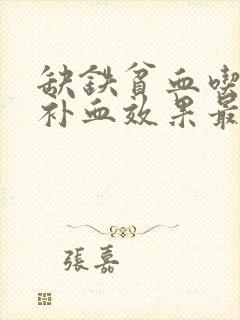 缺鉄貧血喫
补血效果最
張嘉